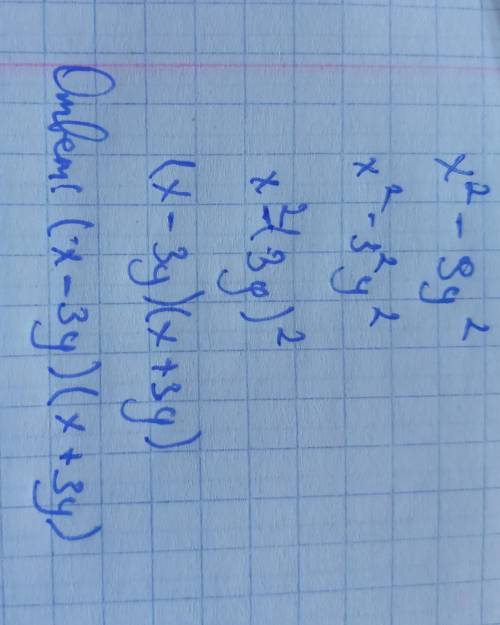 x² - 9y²
x² - 3²y²
x² - (3y)²
(x - 3y)(x + 3y)
Ответ: (x - 3y)(x + 3y)